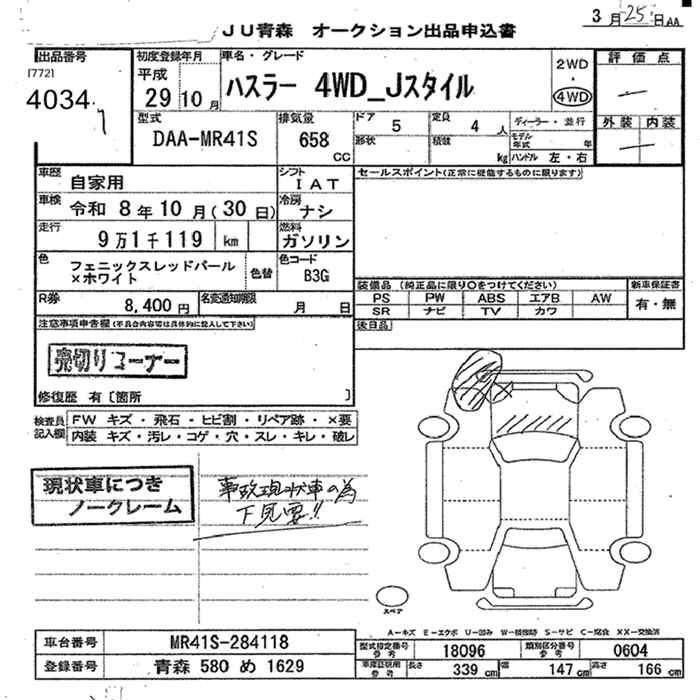 JU青森 オークション出品申込書
3月25日AA
出品番号
[772]
4034
初度登録年月
平成
29 10月
車名・グレード
ハスラー 4WD_Jスタイル
2WD
・
4WD
評価点
外装 内装
型式
DAA-MR41S
排気量
658
CC
ドア
5
定員
4 人
ディーラー・並行
形状
積載
kg
モデル年式 年
ハンドル 左・右
車歴
自家用
シフト
IAT
セールスポイント(正常に機能するものに限ります)
車検 令和 8年10月(30日)
冷房
ナシ
走行
9万1千119 km
燃料
ガソリン
色
フェニックスレッドパール
×ホワイト
色替
色コード
B3G
装備品 (純正品に限り○をつけてください)
新車保証書
PS PW ABS エアB AW
SR ナビ TV カワ
有・無
R券
8,400円
名変通知期限
月 日
後日品
注意事項申告欄(不具合内容等は具体的に記入して下さい)
売切りコーナー
修復歴 有〔箇所 〕
検査員記入欄
FW キズ・飛石・ヒビ割・リペア跡・×要
内装 キズ・汚レ・コゲ・穴・スレ・キレ・破レ
現状車につき
ノークレーム
事故現状車の為
下見要!!
スペア
A-キズ E-エクボ U-凹み W-補修跡 S-サビ C-腐食 XX-交換済
車台番号 MR41S-284118
登録番号 青森 580 め 1629
型式指定番号 参考 18096 類別区分番号 参考 0604
車庫証明用 参考 長さ 339 cm 幅 147 cm 高さ 166 cm